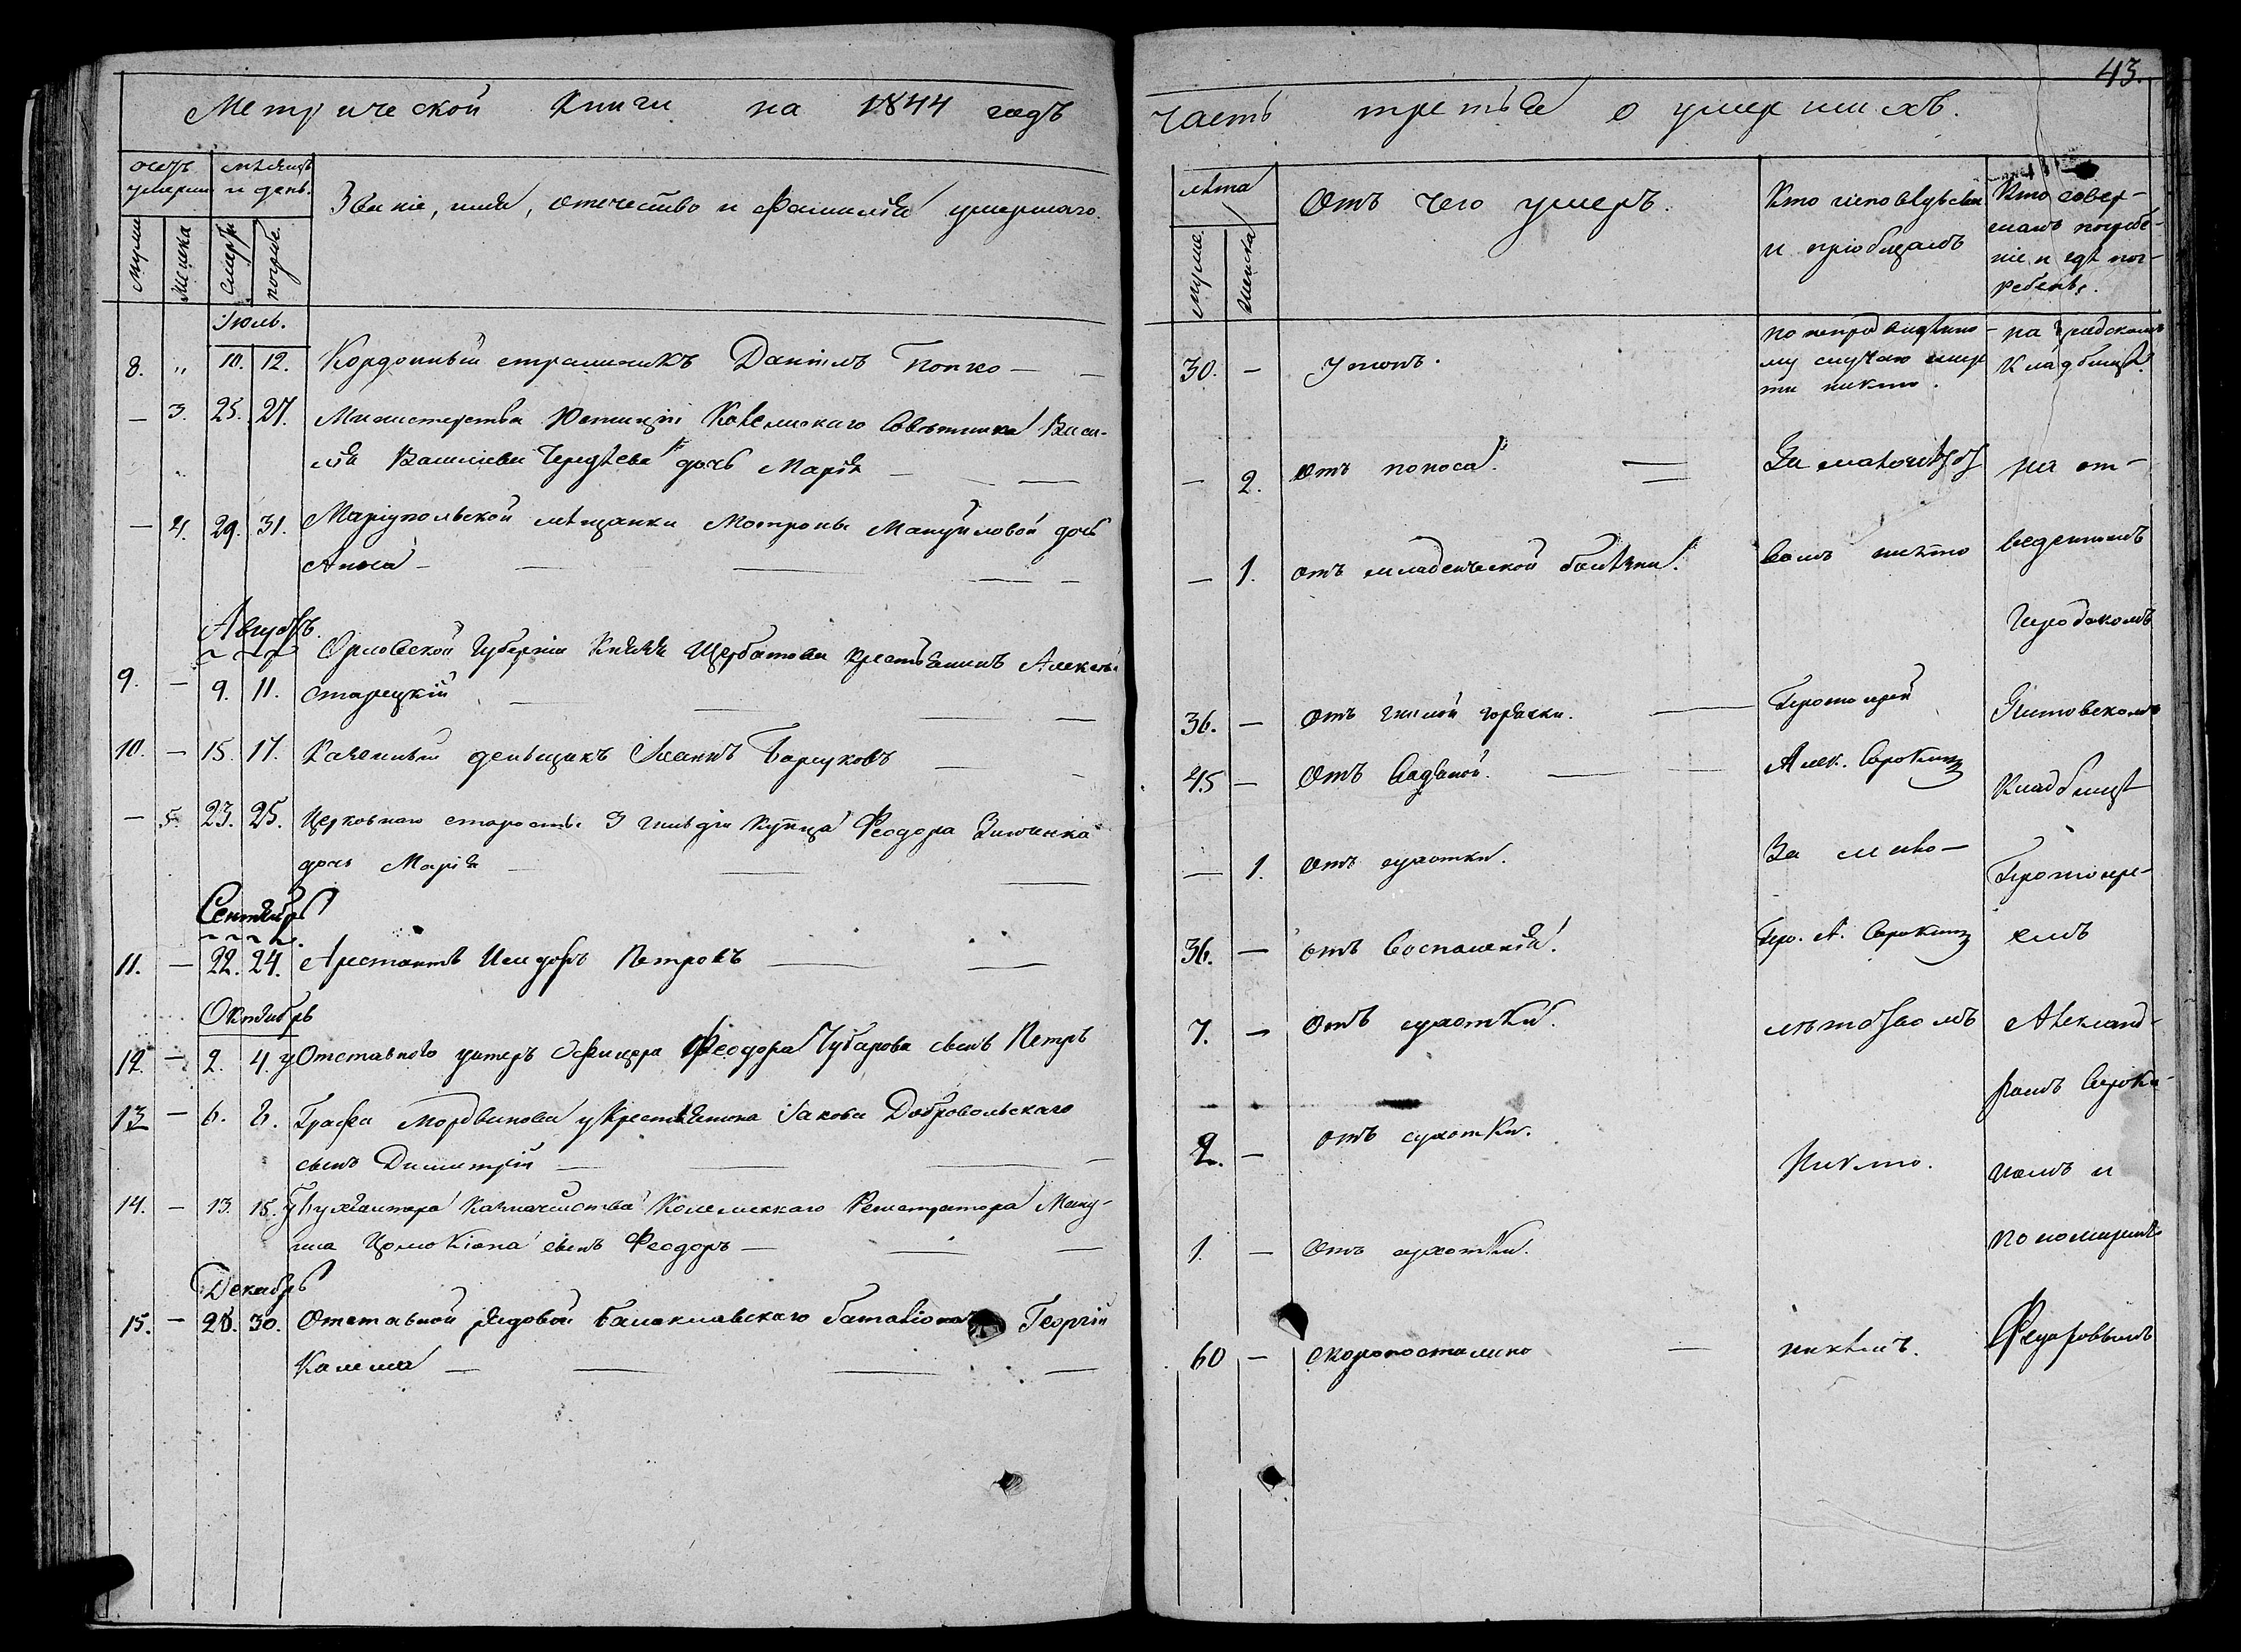 43.
Метрической книги на 1844 годъ
часть третья о умершихъ.
мѣсяцъ
и день.
Званіе, имя, отечество и фамилія умершаго.
муж.
женска
смерти
погреб.
лѣта
женска
Отъ чего умеръ.
Кто исповѣдывалъ
и пріобщалъ
Кто совер-
шалъ погребе-
ніе и гдѣ пог-
ребенъ.
Іюль.
8. „ 10. 12. Кордонный стражникъ Даніилъ Попко —
30. — утопъ.
по непредвидѣнно-
му случаю смер
ти никто.
на градскомъ
кладбищѣ
— 3. 25. 27. Министерства Юстиціи Совѣтника Васи-
лія Васильева дочь Марія —
— 2. отъ поноса.
За малолѣтст
на от-
— 4. 29. 31. Маріупольской мѣщанки Матроны Мануйловой дочь
Анна —
— 1. отъ младенческой болѣзни.
вомъ никто
веденномъ
Городскомъ
Августъ.
Орловской Губерніи Князя Щербатова крестьянинъ Алексѣй
9. — 9. 11. Старецкій
36. — отъ гнилой горячки.
Протоіерей
10. — 15. 17. Казенный денщикъ Иванъ Барсуковъ
45 — отъ водяной.
Алек. Сорокинъ
Кладбищѣ
— 5. 23. 25. Церковнаго старосты 3 гильдіи купца Феодора
дочь Марія —
— 1. отъ сухотки.
За мало-
Протоіере-
Сентябрь
11. — 22. 24. Арестантъ Исидоръ Петровъ
36. — отъ воспаленія.
Про. А. Сорокинъ
емъ
Октябрь
12. — 2. 4. у Отставного унтеръ Офицера Феодора Чубарова сынъ Петръ
7. — отъ сухотки.
лѣтствомъ
Александ-
ромъ Сороки-
13 — 6. 8. Графа Мордвинова у крестьянина Іакова Добровольскаго
сынъ Димитрій —
2. — отъ сухотки.
Никто.
номъ и
14. — 13. 15. у Бухгалтера Казначейства Колежскаго Регистратора Ману-
сынъ Феодоръ —
1. — отъ сухотки.
пономаремъ
Декабрь
15. — 28. 30. Отставной рядовой Балаклавскаго баталіона Георгій
60 — скоропостижно —
никѣмъ.